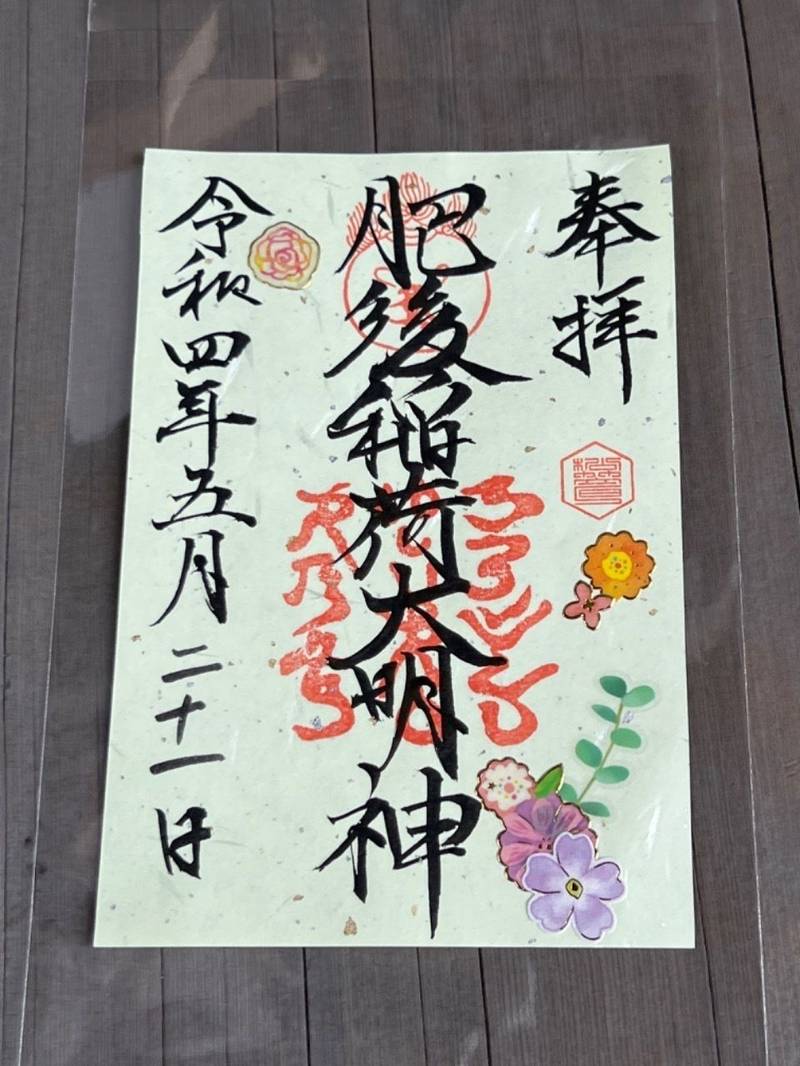 奉拝
肥後稲荷大明神
令和四年五月二十一日